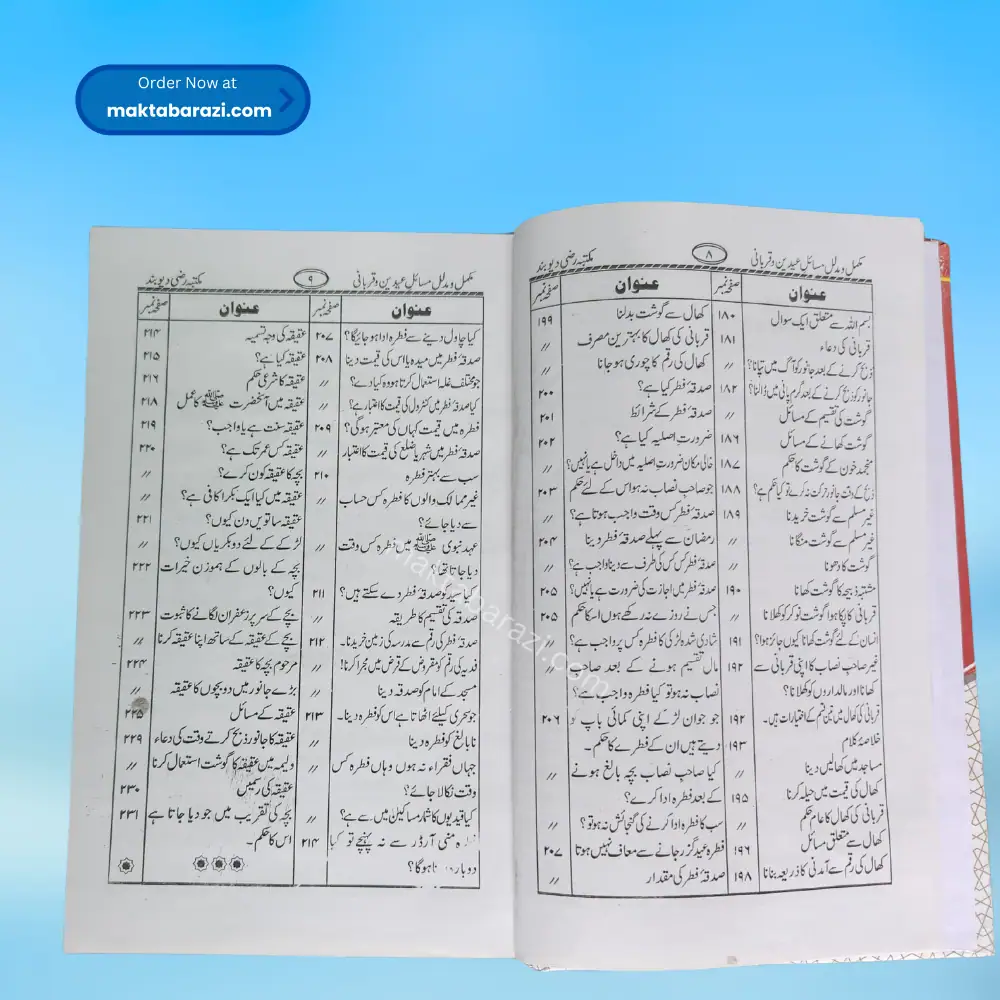 Order Now at
maktabarazi.com
مکمل ومدلل مسائل عیدین وقربانی ۸ مکتبہ رضی دیوبند
عنوان صفحہ نمبر
بسم اللہ سے متعلق ایک سوال ۱۸۰
قربانی کی دعاء ۱۸۱
ذبح کرنے کے بعد جانور کو آگ میں تپانا؟ 〃
جانور کو ذبح کرنے کے بعد گرم پانی میں ڈالنا؟ ۱۸۲
گوشت کی تقسیم کے مسائل 〃
گوشت کھانے کے مسائل ۱۸۶
منجمد خون کے گوشت کا حکم ۱۸۷
ذبح کے وقت جانور حرکت نہ کرے تو کیا حکم ہے؟ ۱۸۸
غیر مسلم سے گوشت خریدنا ۱۸۹
غیر مسلم سے گوشت منگانا 〃
گوشت کا دھونا 〃
مشتبہ ذبیحہ کا گوشت کھانا ۱۹۰
قربانی کا پکا ہوا گوشت نوکر کو کھلانا 〃
انسان کے لئے گوشت کھانا کیوں جائز ہوا؟ ۱۹۱
غیر صاحب نصاب کا اپنی قربانی سے ۱۹۲
کھانا اور مالداروں کو کھلانا؟
قربانی کی کھال میں تین قسم کے اختیارات ہیں۔ ۱۹۲
خلاصۂ کلام ۱۹۳
مساجد میں کھالیں دینا 〃
کھال کی قیمت میں حیلہ کرنا ۱۹۵
قربانی کی کھال کا عام حکم 〃
کھال سے متعلق مسائل ۱۹۶
کھال کی رقم سے آمدنی کا ذریعہ بنانا ۱۹۸
عنوان صفحہ نمبر
کھال سے گوشت بدلنا ۱۹۹
قربانی کی کھال کا بہترین مصرف 〃
کھال کی رقم کا چوری ہوجانا 〃
صدقۂ فطر کیا ہے؟ ۲۰۰
صدقۂ فطر کے شرائط ۲۰۱
ضرورت اصلیہ کیا ہے؟ ۲۰۲
خالی مکان ضرورت اصلیہ میں داخل ہے یا نہیں؟ 〃
جو صاحب نصاب نہ ہو اس کے لئے حکم ۲۰۳
صدقۂ فطر کس وقت واجب ہوتا ہے؟ 〃
رمضان سے پہلے صدقۂ فطر دینا ۲۰۴
صدقۂ فطر کس کس کی طرف سے دینا واجب ہے؟ 〃
صدقۂ فطر میں اجازت کی ضرورت ہے یا نہیں؟ ۲۰۵
جس نے روزے نہ رکھے ہوں اس کا حکم ۲۰۵
شادی شدہ لڑکی کا فطرہ کس پر واجب ہے؟ 〃
مال تقسیم ہونے کے بعد صاحب 〃
نصاب نہ ہو تو کیا فطرہ واجب ہے؟
جو جوان لڑکے اپنی کمائی باپ کو ۲۰۶
دیتے ہیں ان کے فطرے کا حکم۔
کیا صاحب نصاب بچہ بالغ ہونے 〃
کے بعد فطرہ ادا کرے؟
سب کا فطرہ ادا کرنے کی گنجائش نہ ہو تو؟ 〃
فطرہ عید گزر جانے سے معاف نہیں ہوتا ۲۰۷
صدقۂ فطر کی مقدار 〃
مکمل ومدلل مسائل عیدین وقربانی ۹ مکتبہ رضی دیوبند
عنوان صفحہ نمبر
کیا چاول دینے سے فطرہ ادا ہو جائیگا؟ ۲۰۷
صدقۂ فطر میں میدہ یا اس کی قیمت دینا ۲۰۸
جو مختلف غلہ استعمال کرتا ہو وہ کیا دے؟ 〃
کیا صدقۂ فطر میں کنٹرول کی قیمت کا اعتبار ہے؟ 〃
فطرہ میں قیمت کہاں کی معتبر ہوگی؟ ۲۰۹
صدقۂ فطر میں شہر یا ضلع کی قیمت کا اعتبار 〃
سب سے بہتر فطرہ ۲۱۰
غیر ممالک والوں کا فطرہ کس حساب 〃
سے دیا جائے؟
عہد نبوی ﷺ میں فطرہ کس وقت 〃
دیا جاتا تھا؟
کیا سید کو صدقۂ فطر دے سکتے ہیں؟ ۲۱۱
صدقہ کی تقسیم کا طریقہ 〃
صدقۂ فطر کی رقم سے مدرسہ کی زمین خریدنا۔ ۲۱۲
فدیہ کی رقم کو مقروض کے قرض میں مجرا کرنا؟ 〃
مسجد کے امام کو صدقہ دینا 〃
جو سحری کیلئے اٹھاتا ہے اس کو فطرہ دینا۔ ۲۱۳
نابالغ کو فطرہ دینا 〃
جہاں فقراء نہ ہوں وہاں فطرہ کس 〃
وقت نکالا جائے؟
کیا قیدیوں کا شمار مساکین میں سے ہے؟ 〃
منی آرڈر سے نہ پہنچے تو کیا ۲۱۴
ہوگا؟
عنوان صفحہ نمبر
عقیقہ کی وجہ تسمیہ ۲۱۴
عقیقہ کیا ہے؟ ۲۱۵
عقیقہ کا شرعی حکم ۲۱۶
عقیقہ میں آنحضرت ﷺ کا عمل ۲۱۸
عقیقہ سنت ہے یا واجب؟ ۲۱۹
عقیقہ کس عمر تک ہے؟ ۲۲۰
بچہ کا عقیقہ کون کرے؟ 〃
عقیقہ میں کیا ایک بکرا کافی ہے؟ 〃
عقیقہ ساتویں دن کیوں؟ ۲۲۱
لڑکے کے لئے دو بکریاں کیوں؟ 〃
بچہ کے بالوں کے ہموزن خیرات ۲۲۲
کیوں؟
بچے کے سر پر زعفران لگانے کا ثبوت ۲۲۳
بچے کے عقیقہ کے ساتھ اپنا عقیقہ کرنا 〃
مرحوم بچہ کا عقیقہ ۲۲۴
بڑے جانور میں دو بچوں کا عقیقہ 〃
عقیقہ کے مسائل ۲۲۵
عقیقہ کا جانور ذبح کرتے وقت کی دعاء ۲۲۹
ولیمہ میں عقیقہ کا گوشت استعمال کرنا 〃
عقیقہ کی رسمیں ۲۳۰
بچہ کی تقریب میں جو دیا جاتا ہے ۲۳۱
اس کا حکم۔
maktabarazi.com